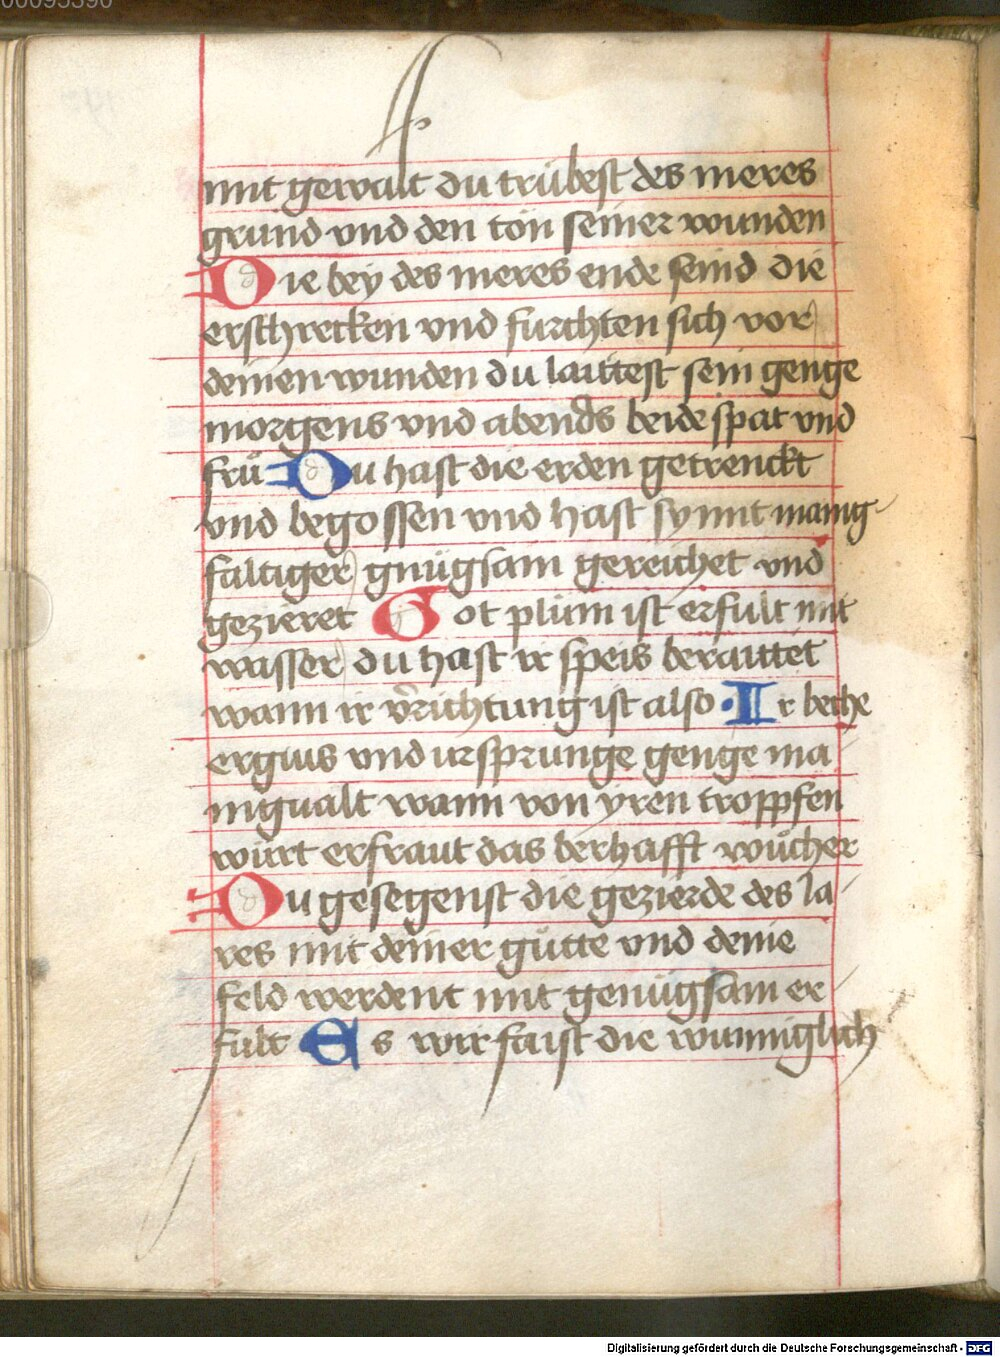 00095390
mit gewalt du trübest des meres
grund vnd den tön seiner wunden
Die bey des meres ende seind die
erschrecken vnd furchten sich vor
deinen wunden du laittest sein genge
morgens vnd abends beide spat vnd
frü Du hast die erden getrenckt
vnd begossen vnd hast synnt manig
faltiger gnügsam gereichet vnd
gezieret Got plüm ist erfult mit
wasser du hast ir speis beraittet
wann ir v̄richtung ist also · Ir beche
ergius vnd ursprunge genge ma
nigualt wann von yren tropffen
würt erfraut das berhafft wücher
Du gesegenst die gezierde des Ja
res mit deiner gütte vnd deine
feld werdent mit genügsam er
fült Es wir faist die wunniglich
Digitalisierung gefördert durch die Deutsche Forschungsgemeinschaft - DFG